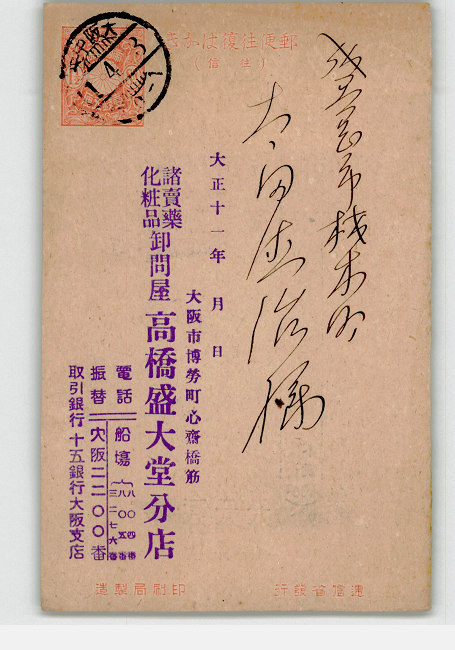 郵便往復はがき
(往信)
太田
様
大正十一年 月 日
大阪市博労町心齋橋筋
諸賣藥
化粧品
卸問屋 高橋盛大堂分店
電話 船場
八〇四番
八〇五番
三二七六番
振替 大阪二二〇〇番
取引銀行 十五銀行大阪支店
逓信省發行
印刷局製造